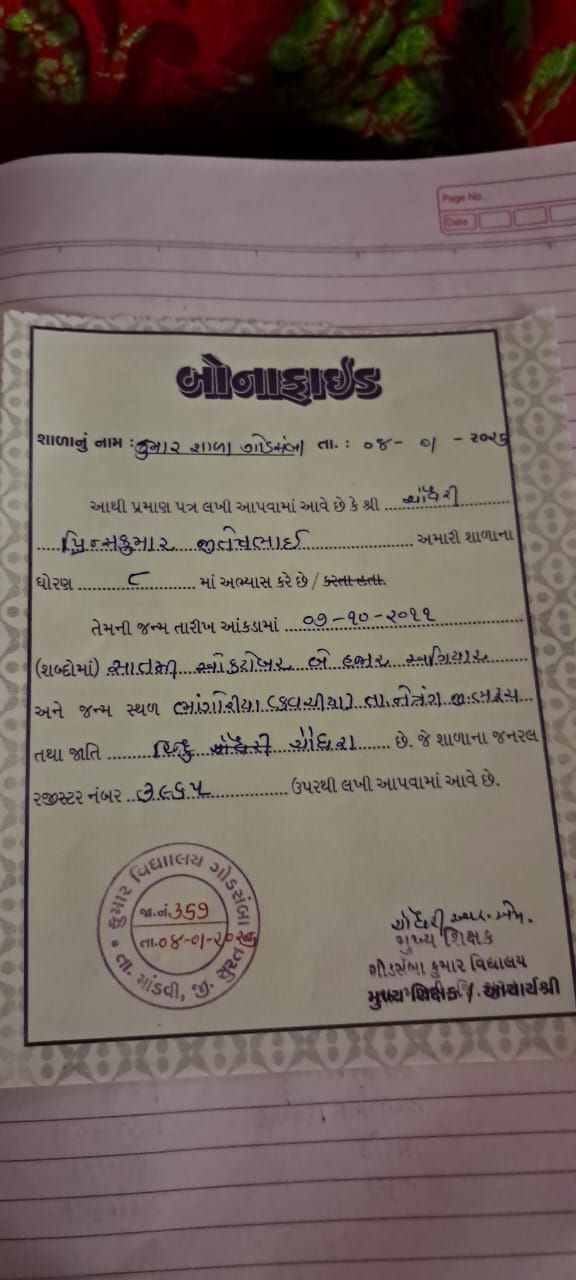 Page No.
Date
બોનાફાઈડ
શાળાનું નામ : કુમાર શાળા ગોડસંબા તા. : ૦૪- ૦૧ - ૨૦૨૫
આથી પ્રમાણ પત્ર લખી આપવામાં આવે છે કે શ્રી ચૌધરી
પ્રિન્સકુમાર જીતેષભાઈ અમારી શાળાના
ધોરણ ૮ માં અભ્યાસ કરે છે / કરતા હતા.
તેમની જન્મ તારીખ આંકડામાં ૦૭-૧૦-૨૦૧૧
(શબ્દોમાં) સાતમી ઓકટોબર બે હજાર અગિયાર
અને જન્મ સ્થળ તા. નેત્રંગ જી. ભરૂચ
તથા જાતિ હિન્દુ ચૌધરી છે. જે શાળાના જનરલ
રજીસ્ટર નંબર ૩૯૬૫ ઉપરથી લખી આપવામાં આવે છે.
કુમાર વિદ્યાલય ગોડસંબા
જા.નં. 359
તા. ૦૪-૦૧-૨૦૨૫
તા. માંડવી, જી. સુરત
ચૌધરી
મુખ્ય શિક્ષક
ગોડસંબા કુમાર વિદ્યાલય
મુખ્ય શિક્ષક / આચાર્યશ્રી